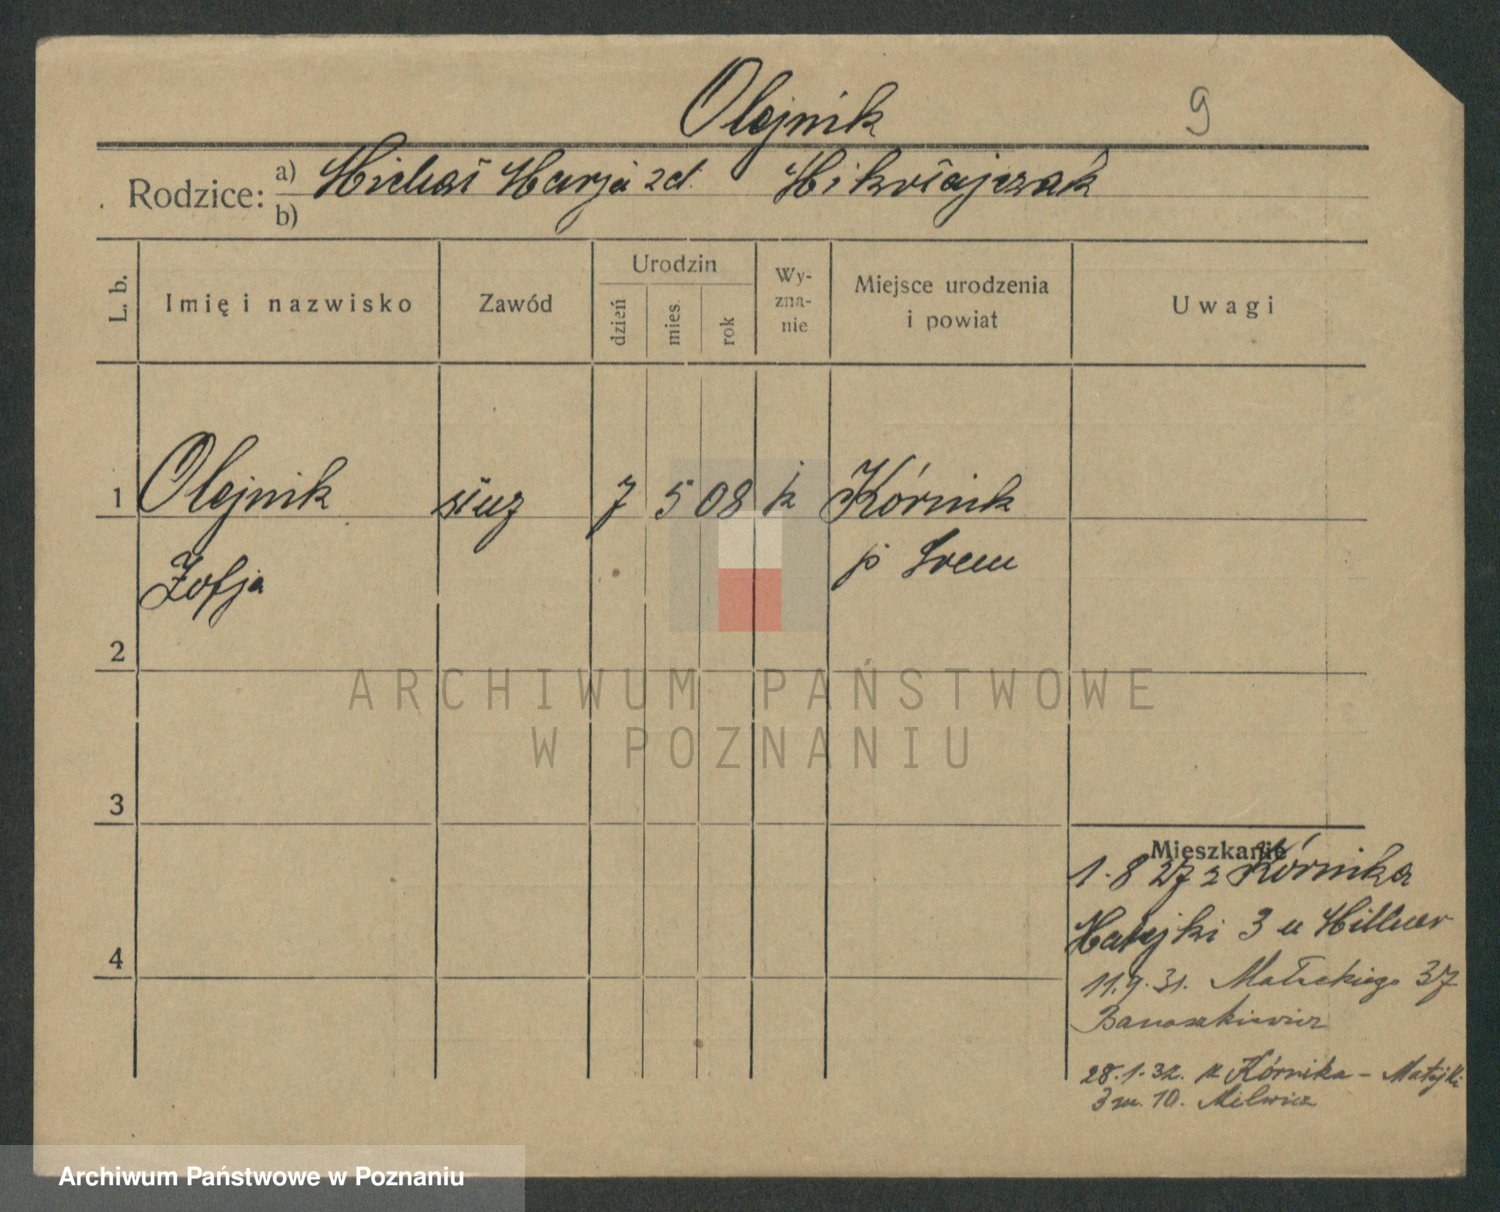 Olejnik 9
Rodzice: a) Michał Marja zd. Mikołajczak
b)
L. b. Imię i nazwisko Zawód Urodzin dzień mies. rok Wy-zna-nie Miejsce urodzenia i powiat Uwagi
1 Olejnik służ 7 5 08 k Kórnik
Zofja p Śrem
2
ARCHIWUM PAŃSTWOWE
W POZNANIU
3
Mieszkanie
1.8 27 z Kórnika
Matejki 3 u
11.9.31. Małeckiego 37
Banaszkiewicz
28.1.32. z Kórnika - Matejki
3 m. 10.
4
Archiwum Państwowe w Poznaniu